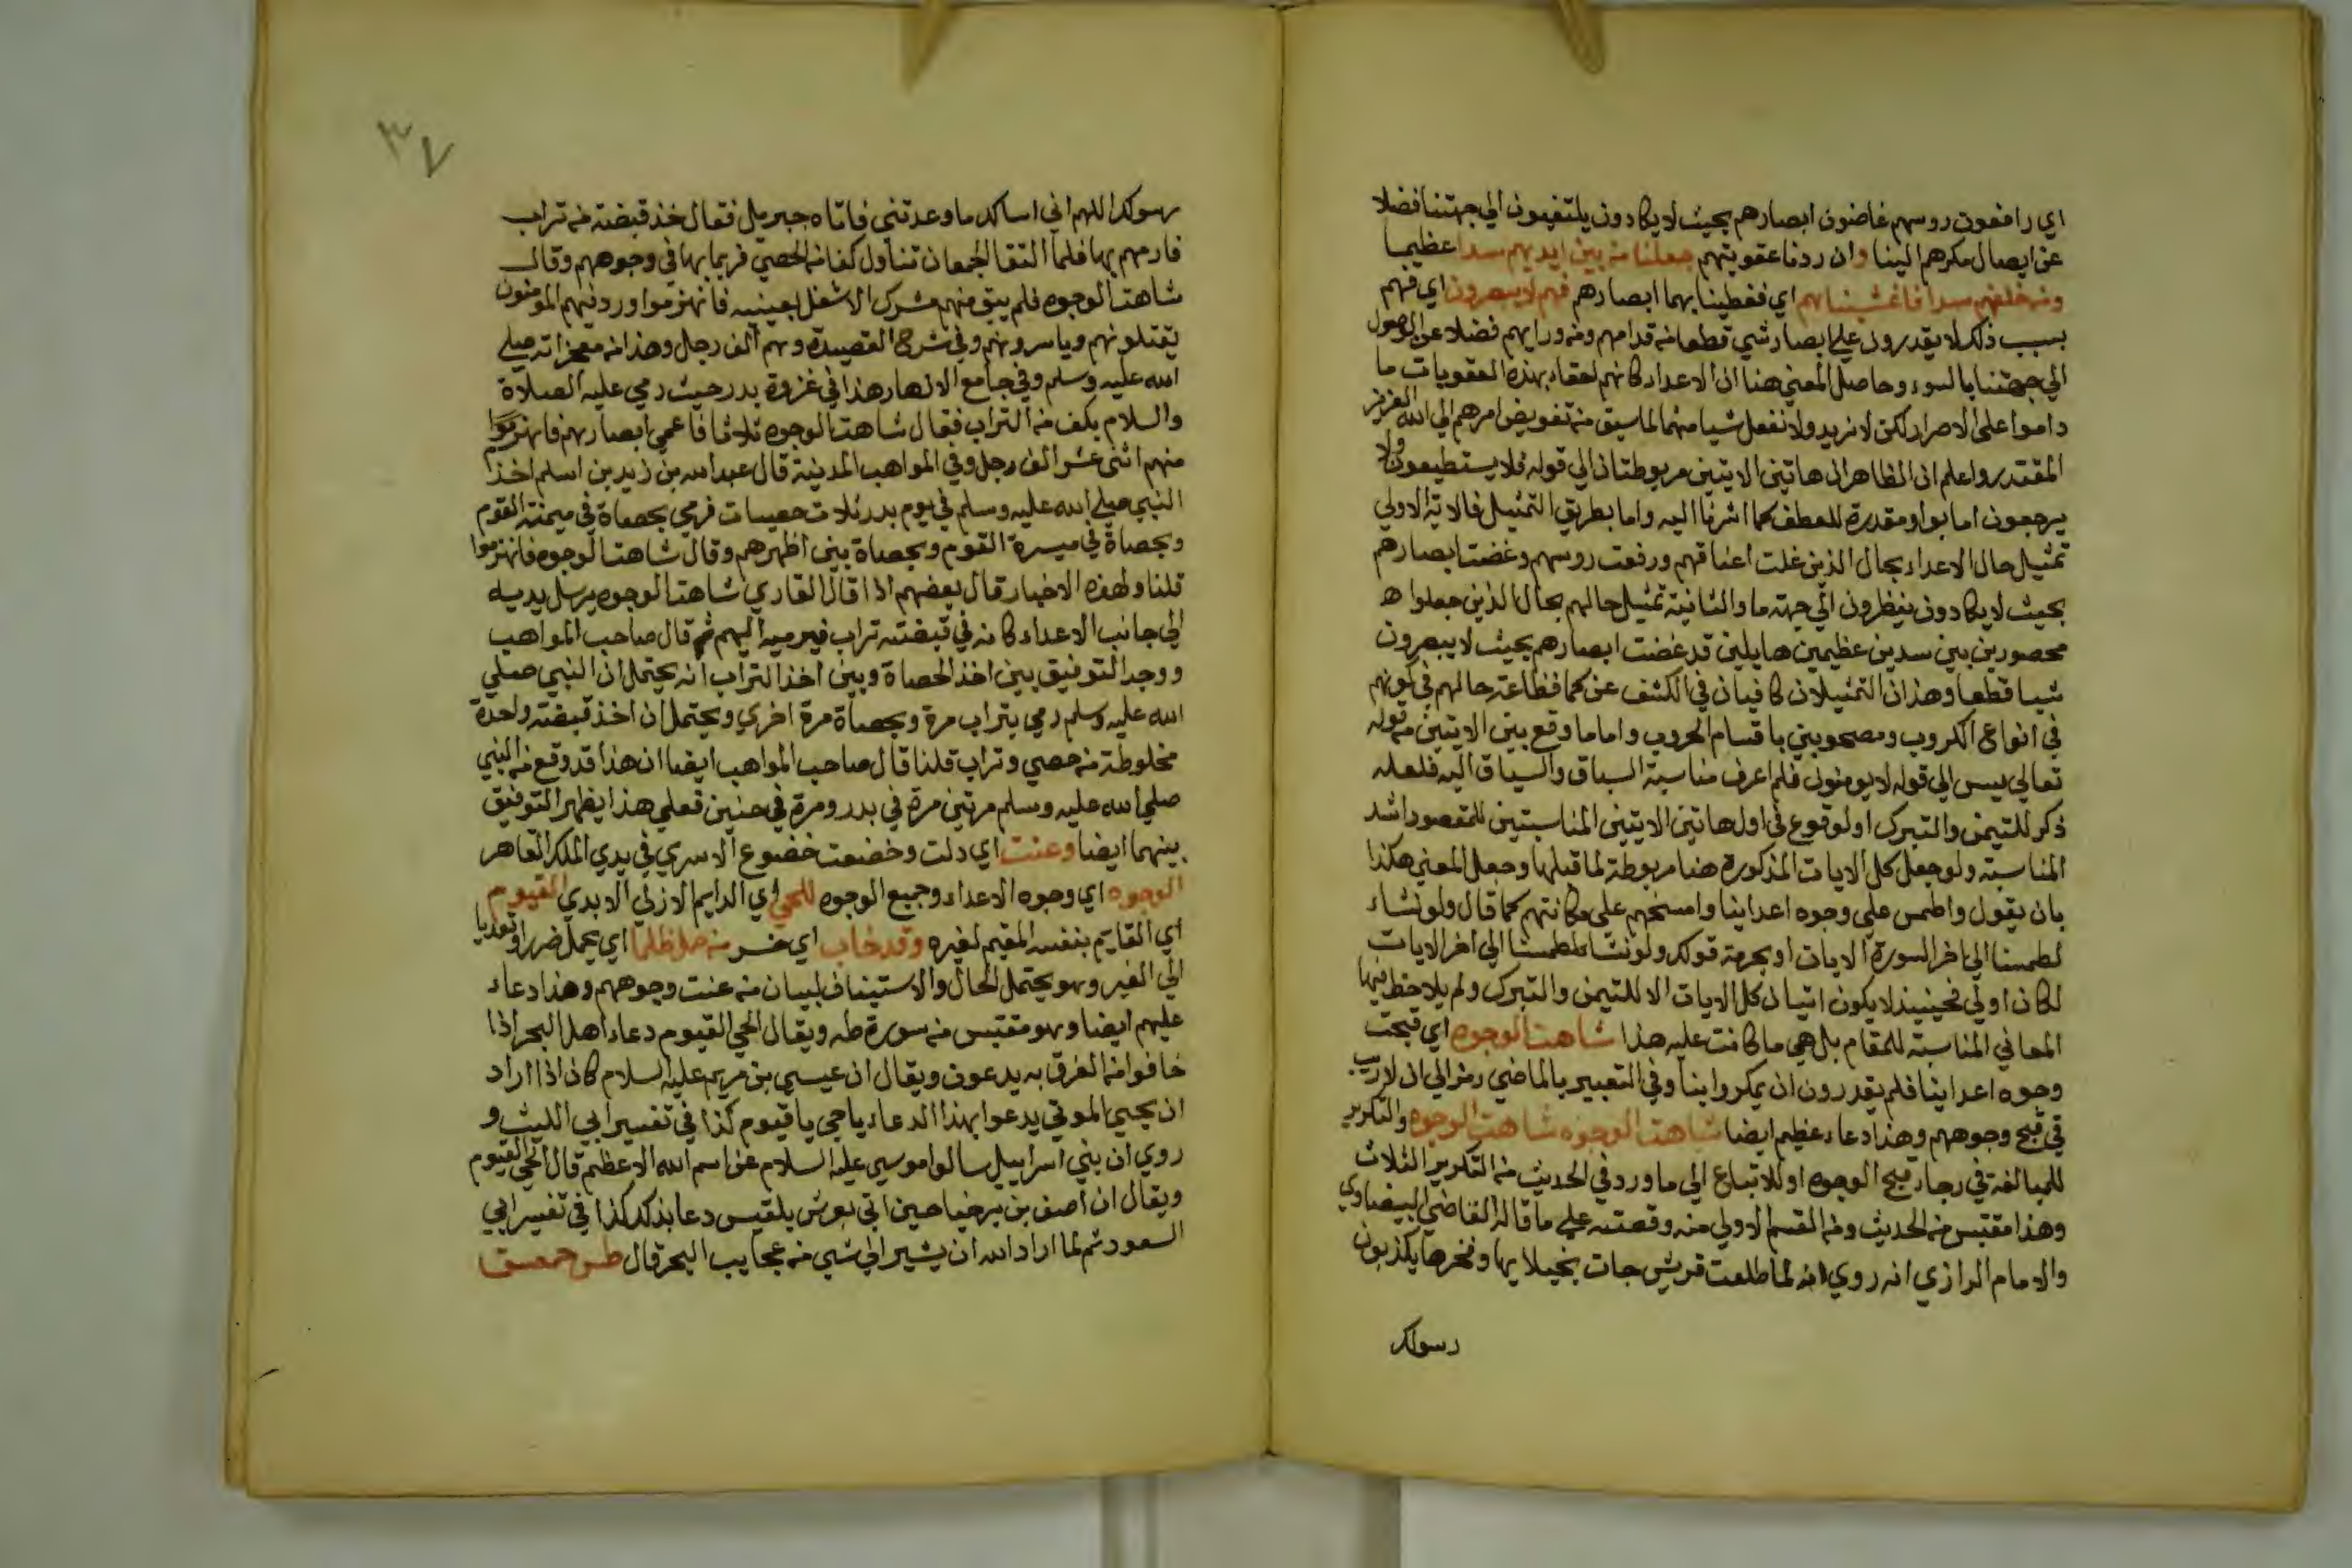 اي رافعون روسهم غاضون ابصارهم بحيث لا يكادون يلتفتون الي جهتنا فضلا
عن ايصال مكرهم الينا وان ردنا عقوبتهم جعلنا من بين ايديهم سدا عظيما
ومن خلفهم سدا فاغشيناهم اي فغطينا بهما ابصارهم فهم لا يبصرون اي فهم
بسبب ذلك لا يقدرون علي ابصار شي قطعا من قدامهم ومن ورايهم فضلا عن الوصول
الي جهتنا بالسوء وحاصل المعني هنا ان الاعداء كانهم احقاء بهذه العقوبات ما
داموا علي الاصرار لكن لا نريد ولا نفعل شيا منهما لما سبق من تفويض امرهم الي الله العزيز
المقتدر واعلم ان الظاهر ان هاتين الايتين مربوطتان الي قوله فلا يستطيعون ولا
يرجعون اما بواو مقدرة للعطف كما اشرنا اليه واما بطريق التمثيل فالاية الاولي
تمثيل حال الاعداء بحال الذين غلت اعناقهم ورفعت روسهم وغضت ابصارهم
بحيث لا يكادون ينظرون الي جهة ما والثانية تمثيل حالهم بحال الذين جعلوا ه
محصورين بين سدين عظيمين هايلين قد غضت ابصارهم بحيث لا يبصرون
شيا قطعا وهذان التمثيلان كافيان في الكشف عن كما فظاعة حالهم في كونهم
في انواع الكروب ومصحوبين باقسام الحروب واما ما وقع بين الايتين من قوله
تعالي يس الي قوله لا يومنون فلم اعرف مناسبة السباق والسياق اليه فلعله
ذكر للتيمن والتبرك او لوقوع في اول هاتين الايتين المناسبتين للمقصود اشد
المناسبة ولو جعل كل الايات المذكورة هنا مربوطة لما قبلها وجعل المعني هكذا
بان يقول واطمس علي وجوه اعداينا وامسخهم علي مكانتهم كما قال ولو نشاء
لطمسنا الي اخر السورة الايات او بحرمة قولك ولو نشاء لطمسنا الي اخر الايات
لكان اولي فحينيذ لا يكون اتيان كل الايات الا للتيمن والتبرك ولم يلاحظ فيها
المعاني المناسبة للمقام بل هي ما كانت عليه هذا شاهت الوجوه اي قبحت
وجوه اعداينا فلم يقدرون ان يمكروا بنا وفي التعبير بالماضي رمز الي ان لا ريب
في قبح وجوههم وهذا دعاء عظيم ايضا شاهت الوجوه شاهت الوجوه والتكرير
للمبالغة في رجاء قبح الوجوه او للاتباع الي ما ورد في الحديث من التكرير الثلاث
وهذا مقتبس من الحديث ومن القسم الاولي منه وقصته علي ما قاله القاضي البيضاوي
والامام الرازي انه روي انه لما طلعت قريش جات بخيلايها وفخرها يكذبون
رسولك
٣٧
رسولك اللهم اني اسالك ما وعدتني فاتاه جبريل فقال خذ قبضة من تراب
فارمهم بها فلما التقا الجمعان تناول كفا من الحصي فرما بها في وجوههم وقال
شاهت الوجوه فلم يبق منهم مشرك الا شغل بعينيه فانهزموا وردفهم المومنون
يقتلونهم وياسرونهم وفي شرح القصيدة وهم الف رجل وهذا من معجزاته صلي
الله عليه وسلم وفي جامع الانهار هذا في غزوة بدر حيث رمي عليه الصلاة
والسلام بكف من التراب فقال شاهت الوجوه ثلاثا فاعمي ابصارهم فانهزموا
منهم اثني عشر الف رجل وفي المواهب المدنية قال عبد الله بن زيد بن اسلم اخذ
النبي صلي الله عليه وسلم في يوم بدر ثلاث حصيات فرمي بحصاة في ميمنة القوم
وبحصاة في ميسرة القوم وبحصاة بين اظهرهم وقال شاهت الوجوه فانهزموا
قلنا ولهذه الاخبار قال بعضهم اذا قال القاري شاهت الوجوه يرسل يديه
الي جانب الاعداء كانه في قبضته تراب فيرميه اليهم ثم قال صاحب المواهب
ووجه التوفيق بين اخذ الحصاة وبين اخذ التراب انه يحتمل ان النبي صلي
الله عليه وسلم رمي بتراب مرة وبحصاة مرة اخري ويحتمل ان اخذ قبضة واحدة
مخلوطة من حصي وتراب قلنا قال صاحب المواهب ايضا ان هذا قد وقع من النبي
صلي الله عليه وسلم مرتين مرة في بدر ومرة في حنين فعلي هذا يظهر التوفيق
بينهما ايضا وعنت اي دلت وخضعت خضوع الاسري في يدي الملك القاهر
الوجوه اي وجوه الاعداء وجميع الوجوه للحي اي الدايم الازلي الابدي القيوم
اي القايم بنفسه المقيم لغيره وقد خاب اي خسر من حمل ظلما اي يحمل ضررا وتعديا
الي الغير وهو يحتمل الحال والاستيناف لبيان من عنت وجوههم وهذا دعاء
عليهم ايضا وهو مقتبس من سورة طه ويقال الحي القيوم دعاء اهل البحر اذا
خافوا من الغرق به يدعون ويقال ان عيسي بن مريم عليه السلام كان اذا اراد
ان يحيي الموتي يدعوا بهذا الدعاء يا حي يا قيوم كذا في تفسير ابي الليث و
روي ان بني اسراييل سالوا موسي عليه السلام عن اسم الله الاعظم قال الحي القيوم
ويقال ان اصف بن برخيا حين اتي بعرش بلقيس دعا بذلك كذا في تفسير ابي
السعود ثم لما اراد الله ان يشير الي شي من عجايب البحر قال طس حمعسق